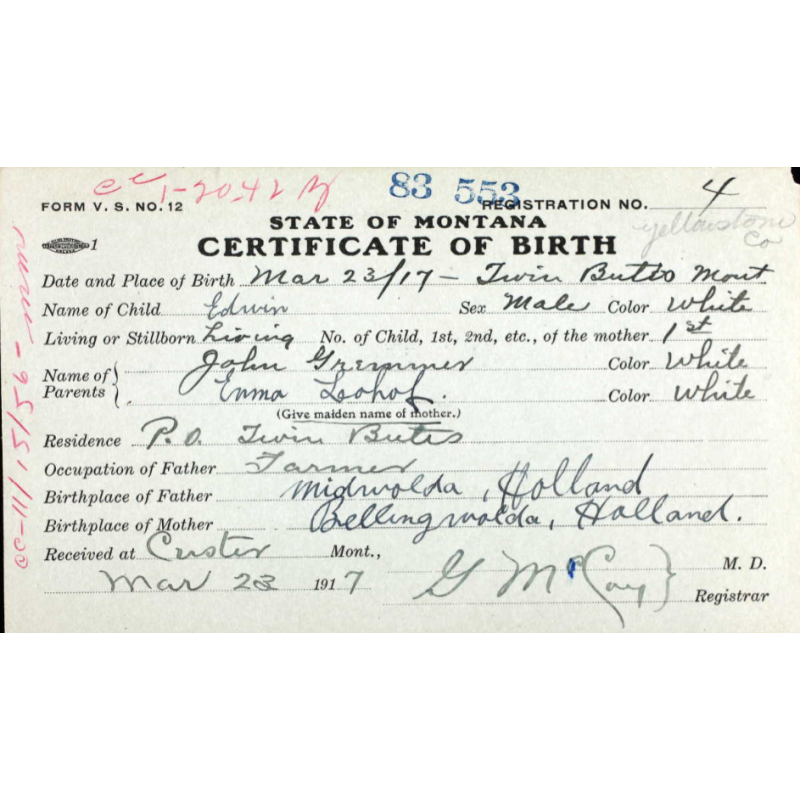 cc 1-20-42 M 83 553
FORM V. S. NO. 12 REGISTRATION NO. 4
Yellowstone
Co
STATE OF MONTANA
1 CERTIFICATE OF BIRTH
Date and Place of Birth Mar 23/17 - Twin Butts Mont
Name of Child Edwin Sex Male Color White
Living or Stillborn Living No. of Child, 1st, 2nd, etc., of the mother 1st
Name of Parents John Gremmer Color White
Emma Color White
(Give maiden name of mother.)
Residence P.O. Twin Butts
Occupation of Father Farmer
Birthplace of Father Midwolda, Holland
Birthplace of Mother Bellingwolda, Holland.
Received at Custer Mont.,
Mar 23 1917 G McCay M. D.
Registrar
cc-11/15/56-mm